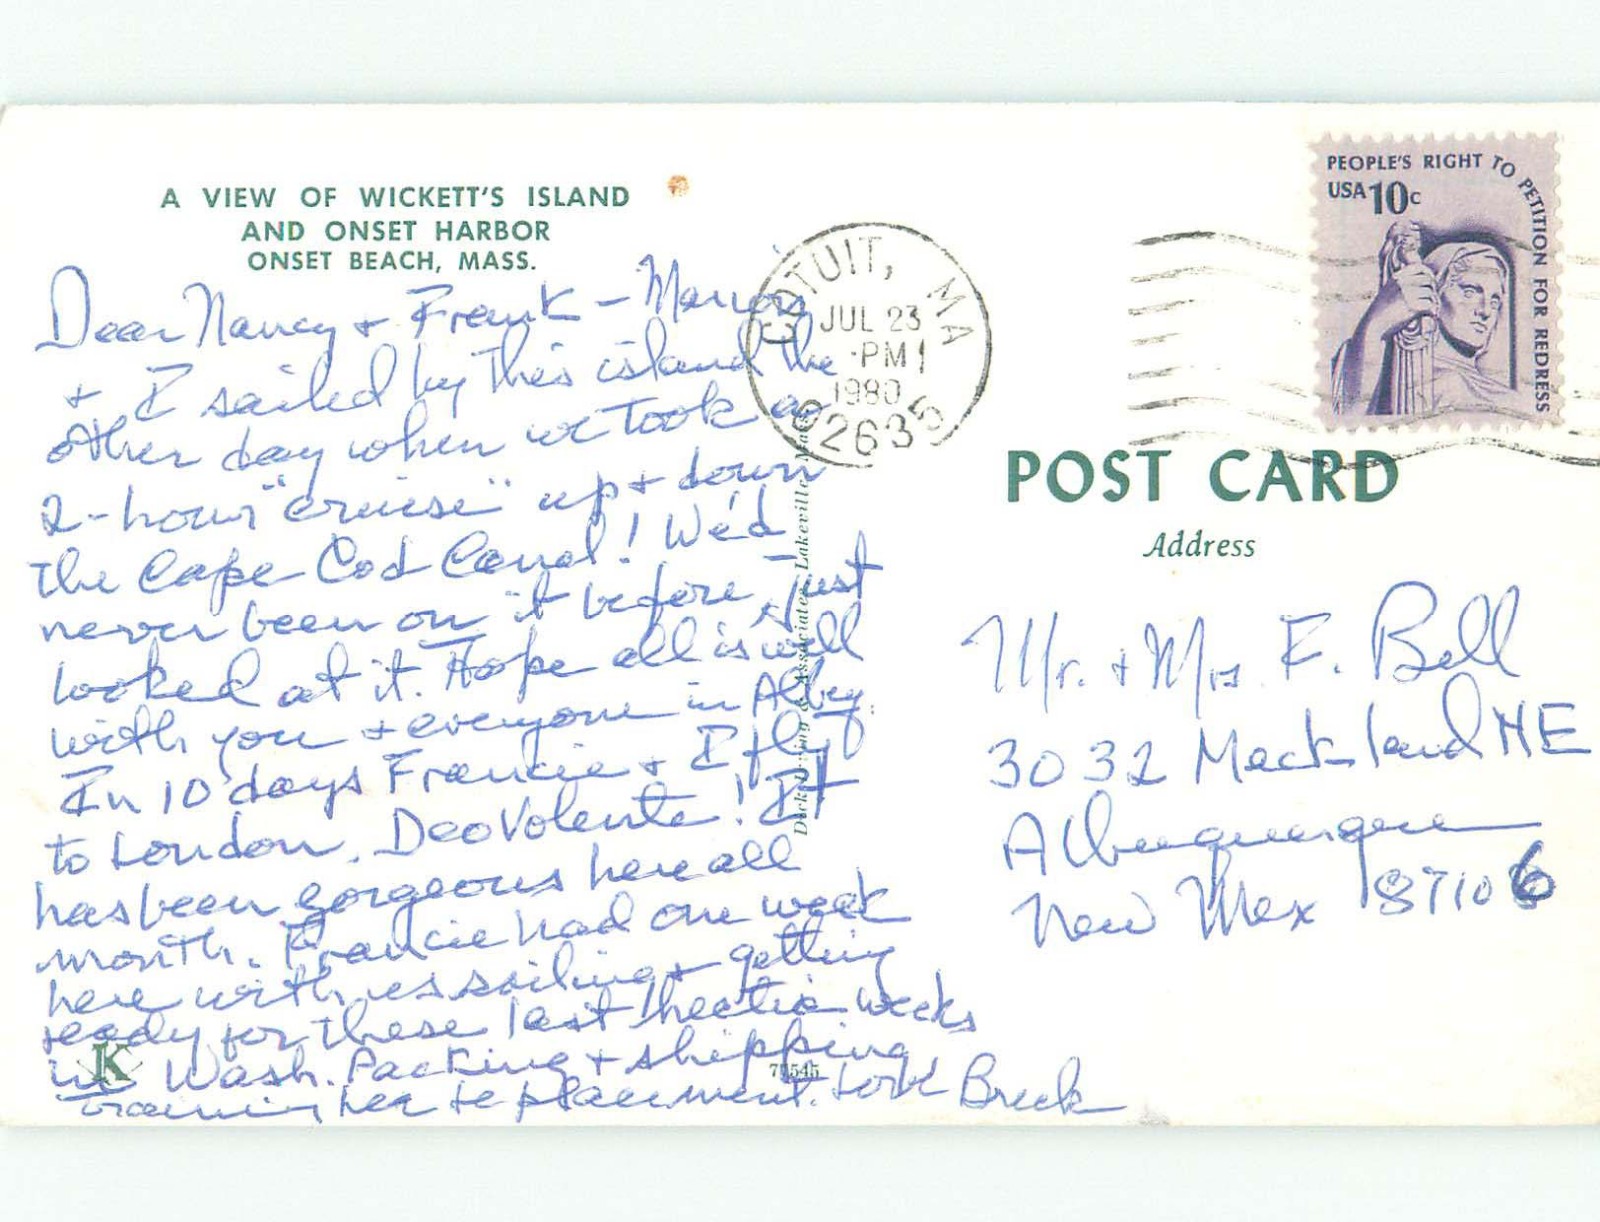 A VIEW OF WICKETT'S ISLAND
AND ONSET HARBOR
ONSET BEACH, MASS.
Dear Nancy + Frank - Marion
+ I sailed by this island the
other day when we took a
2-hour "cruise" up + down
the Cape Cod Canal! We'd
never been on it before - just
looked at it. Hope all is well
with you + everyone in Albuq.
In 10 days Francie + I fly
to London. Deo Volente! It
has been gorgeous here all
month. Francie had one week
here with us sailing + getting
ready for these last hectic weeks
in Wash. Packing + shipping
training her replacement. Love Breck
K
71545
Associates, Lakeville, Mass.
COTUIT, MA
JUL 23
PM
1980
02635
PEOPLE'S RIGHT TO PETITION FOR REDRESS
USA 10c
POST CARD
Address
Mr. + Mrs F. Bell
3032 Mackland NE
Albuquerque
New Mex 87106